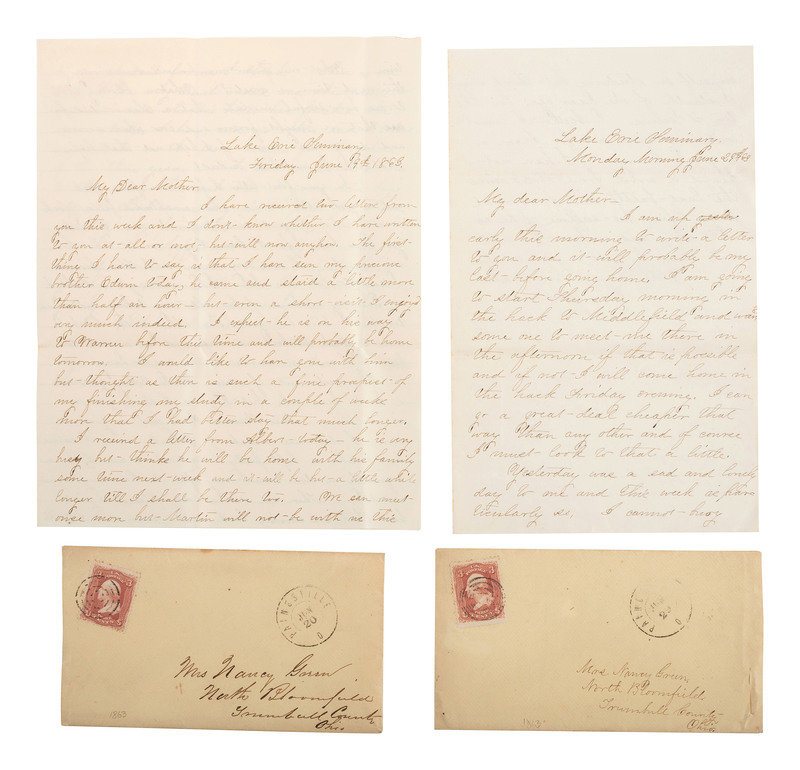 Lake Erie Seminary,
Friday June 19th, 1863.
My Dear Mother
I have received two letters from
you this week and I don't know whether I have written
to you at all or not, but will now anyhow. The first
thing I have to say is that I have seen my precious
brother Edwin today, he came and staid a little more
than half an hour - but even a short visit I enjoyed
very much indeed. I expect he is on his way
to Warren before this time and will probably be home
tomorrow. I would like to have gone with him
but thought as there is such a fine prospect of
my finishing my study in a couple of weeks
more that I had better stay that much longer.
I received a letter from Albert today - he is very
busy but thinks he will be home with his family
some time next week and it will be but a little while
longer till I shall be there too. We can meet
once more but Martin will not be with us this
Lake Erie Seminary,
Monday Morning June 29th 63
My dear Mother
I am up
early this morning to write a letter
to you and it will probable be my
last before going home. I am going
to start Thursday morning in
the hack to Middlefield and want
some one to meet me there in
the afternoon if that is possible
and if not I will come home in
the hack Friday evening. I can
go a great deal cheaper that
way than any other and of course
I must look to that a little.
Yesterday was a sad and lonely
day to me and this week is par
ticularly so. I cannot
PAINESVILLE
JUN
20
O
Mrs Nancy
North Bloomfield
Trumbull County
Ohio
1863
PAINES
O
Mrs. Nancy
North Bloomfield,
Trumbull County
Ohio